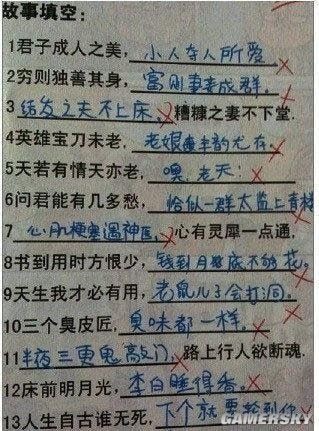 故事填空:
1君子成人之美, 小人夺人所爱 ✗
2穷则独善其身, 富则妻妾成群. ✗
3 结发之夫不上床, ✗ 糟糠之妻不下堂.
4英雄宝刀未老, 老娘丰韵尤存. ✗
5天若有情天亦老, 噢,老天! ✗
6问君能有几多愁, 恰似一群太监上青楼 ✗
7 心肌梗塞遇神医, ✗ 心有灵犀一点通,
8书到用时方恨少, 钱到月底不够花. ✗
9天生我才必有用, 老鼠儿子会打洞. ✗
10三个臭皮匠, 臭味都一样. ✗
11半夜三更鬼敲门, ✗ 路上行人欲断魂.
12床前明月光, 李白睡得香. ✗
13人生自古谁无死, 下个就要轮到你 ✗
GAMERSKY